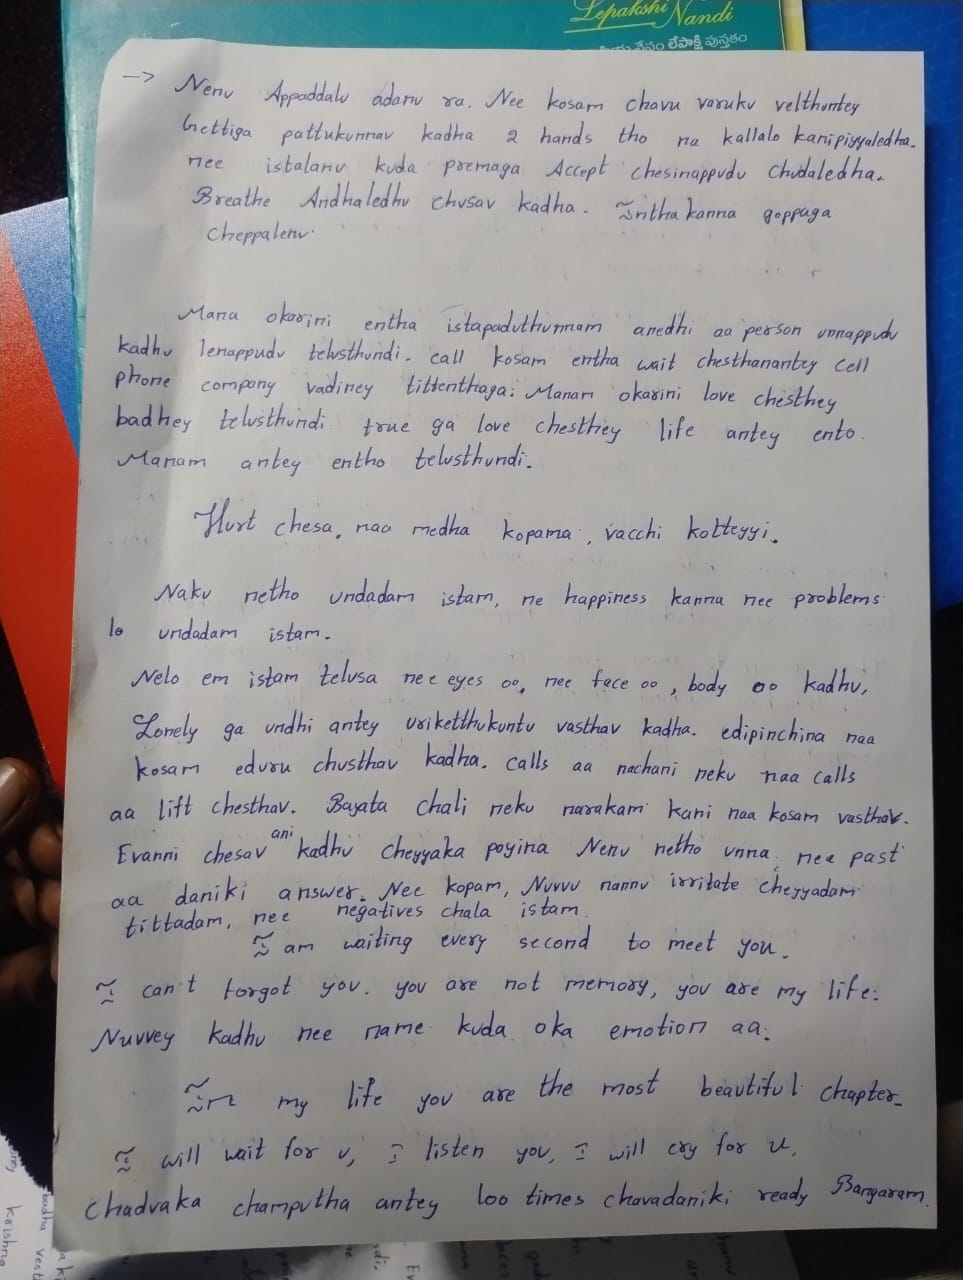 Lepakshi Nandi
నేను లేపాక్షి పుస్తకం
-> Nenu Appaddalu adanu ra. Nee kosam chavu varuku velthuntey
Gettiga pattukunnav kadha 2 hands tho na kallalo kanipiyyaledha.
nee istalanu kuda premaga Accept chesinappudu chudaledha.
Breathe Andhaledhu chusav kadha. Intha kanna goppaga
cheppalenu.
Mana okarini entha istapaduthunnam anedhi aa person unnappudu
kadhu lenappudu telusthundi. call kosam entha wait chesthanantey cell
phone company vadiney tittenthaga. Manam okarini love chesthey
badhey telusthundi true ga love chesthey life antey ento.
Manam antey entho telusthundi.
Hurt chesa, naa medha kopama, vacchi kotteyyi.
Naku netho undadam istam, ne happiness kanna nee problems
lo undadam istam.
Nelo em istam telusa nee eyes oo, nee face oo, body oo kadhu,
Lonely ga undhi antey uriketthukuntu vasthav kadha. edipinchina naa
kosam eduru chusthav kadha. calls aa nachani neku naa calls
aa lift chesthav. Bayata chali neku narakam kani naa kosam vasthav.
Evanni chesav ani kadhu cheyyaka poyina Nenu netho unna, nee past
aa daniki answer. Nee kopam, Nuvvu nannu irritate cheyyadam
tittadam, nee negatives chala istam.
I am waiting every second to meet you.
I can't forgot you. you are not memory, you are my life.
Nuvvey kadhu nee name kuda oka emotion aa.
In my life you are the most beautiful chapter.
I will wait for u, I listen you, I will cry for u,
Chadvaka champutha antey 100 times chavadaniki ready Bangaram.